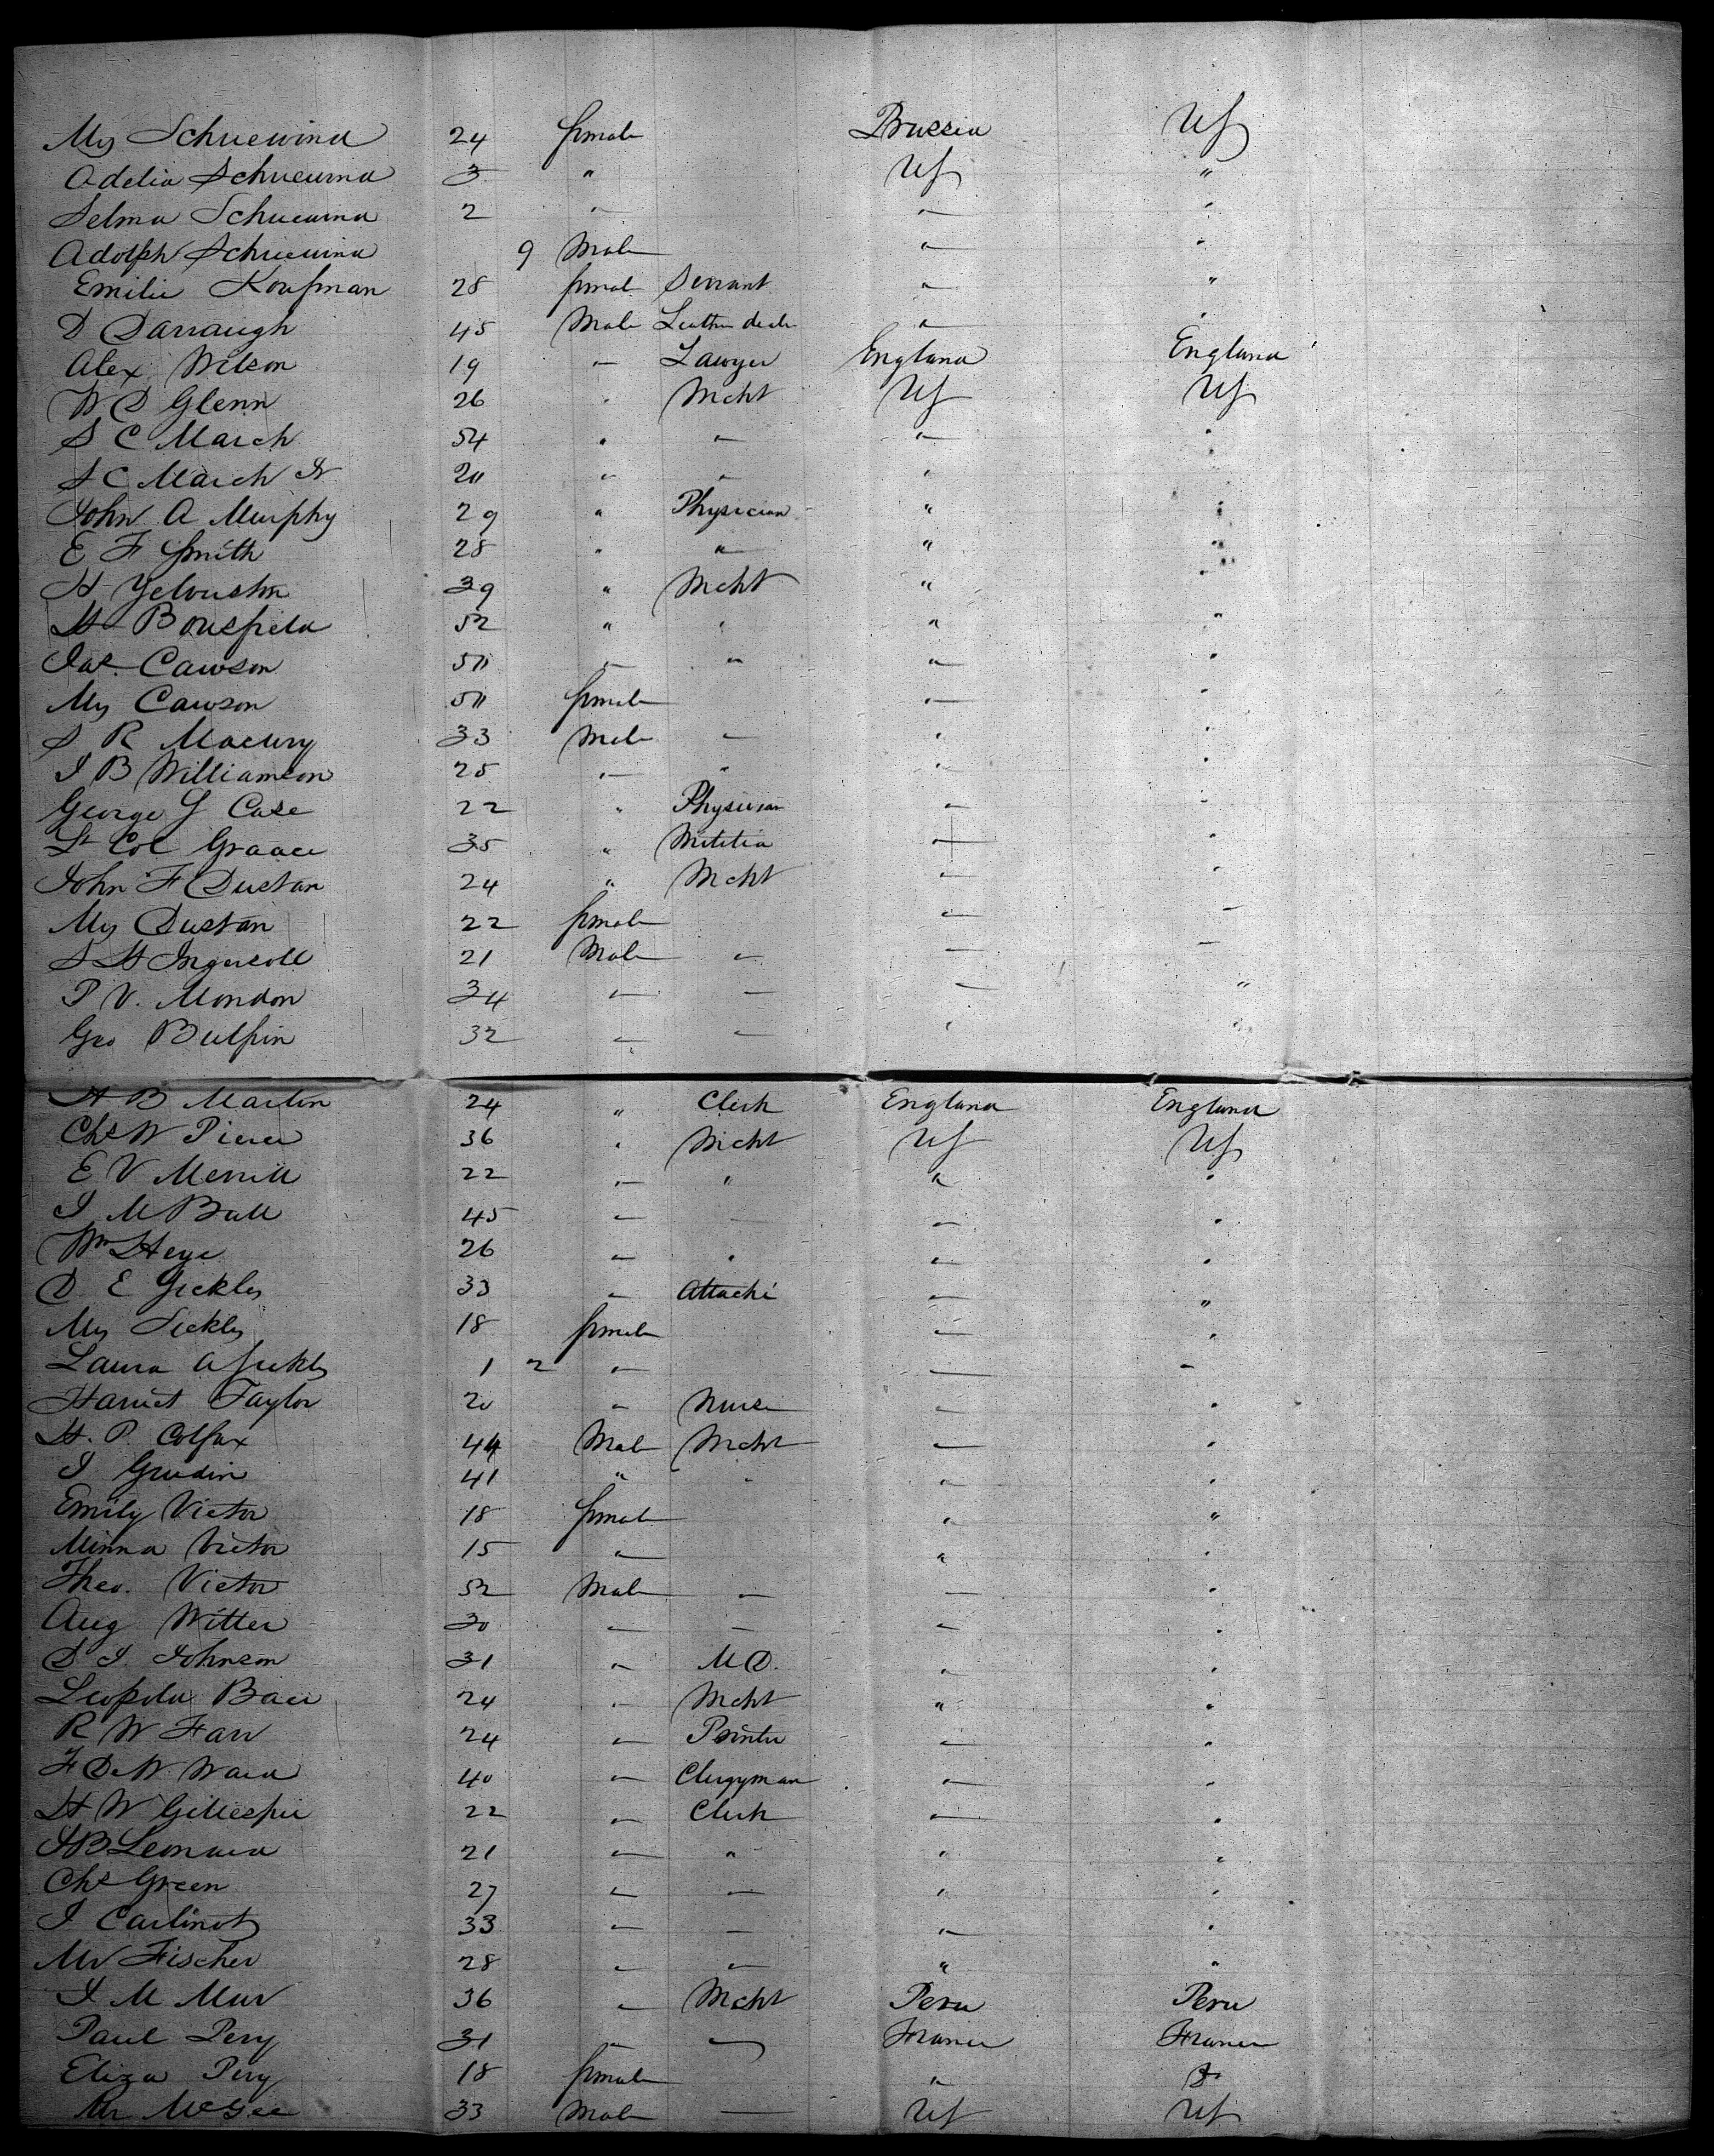 Mrs Schuewind 24 female Prussia US
Adelia Schuewind 3 " US "
Selma Schuewind 2 " " "
Adolph Schuewind 9 Male " "
Emilie Koufman 28 female Servant " "
D Darraugh 45 Male Leather dealer " "
Alex Wilson 19 " Lawyer England England
W D Glenn 26 " Mcht US US
S C March 54 " " " "
S C March Jr 20 " " " "
John A Murphy 29 " Physician " "
E F Smith 28 " " " "
H Yelouston 39 " Mcht " "
H Bousfield 52 " " " "
Jas. Cawson 50 " " " "
Mrs Cawson 50 female " "
S R Macury 33 Male " " "
J B Williamson 25 " " " "
George Y Case 22 " Physician " "
Lt Col Graace 35 " Militia " "
John F Dustan 24 " Mcht " "
Mrs Dustan 22 female " "
S H Ingersoll 21 Male " " "
P V. Mondon 34 " " " "
Geo Bulpin 32 " " " "
H B Marton 24 " Clerk England England
Chs W Pierce 36 " Mcht US US
E V Merrill 22 " " " "
J M Ball 45 " " " "
Wm Heye 26 " " " "
D E Sickles 33 " Attaché " "
Mrs Sickles 18 female " "
Laura A Sickles 1 2 " " "
Harriet Taylor 20 " Nurse " "
H. P. Colfax 44 Male Mcht " "
J Gaudin 41 " " " "
Emily Victor 18 female " "
Minna Victor 15 " " "
Theo. Victor 52 Male " " "
Aug Witter 30 " " " "
D J. Johnson 31 " M D. " "
Leopold Baer 24 " Mcht " "
R W Farr 24 " Printer " "
F D. W. Ward 40 " Clergyman " "
H W Gillespie 22 " Clerk " "
J B Leonard 21 " " " "
Chs Green 27 " " " "
J Carlinot 33 " " " "
Mr Fischer 28 " " " "
J M Mur 36 " Mcht Peru Peru
Paul Pery 31 " " France France
Eliza Pery 18 female " Do
Mr McGee 33 Male " US US